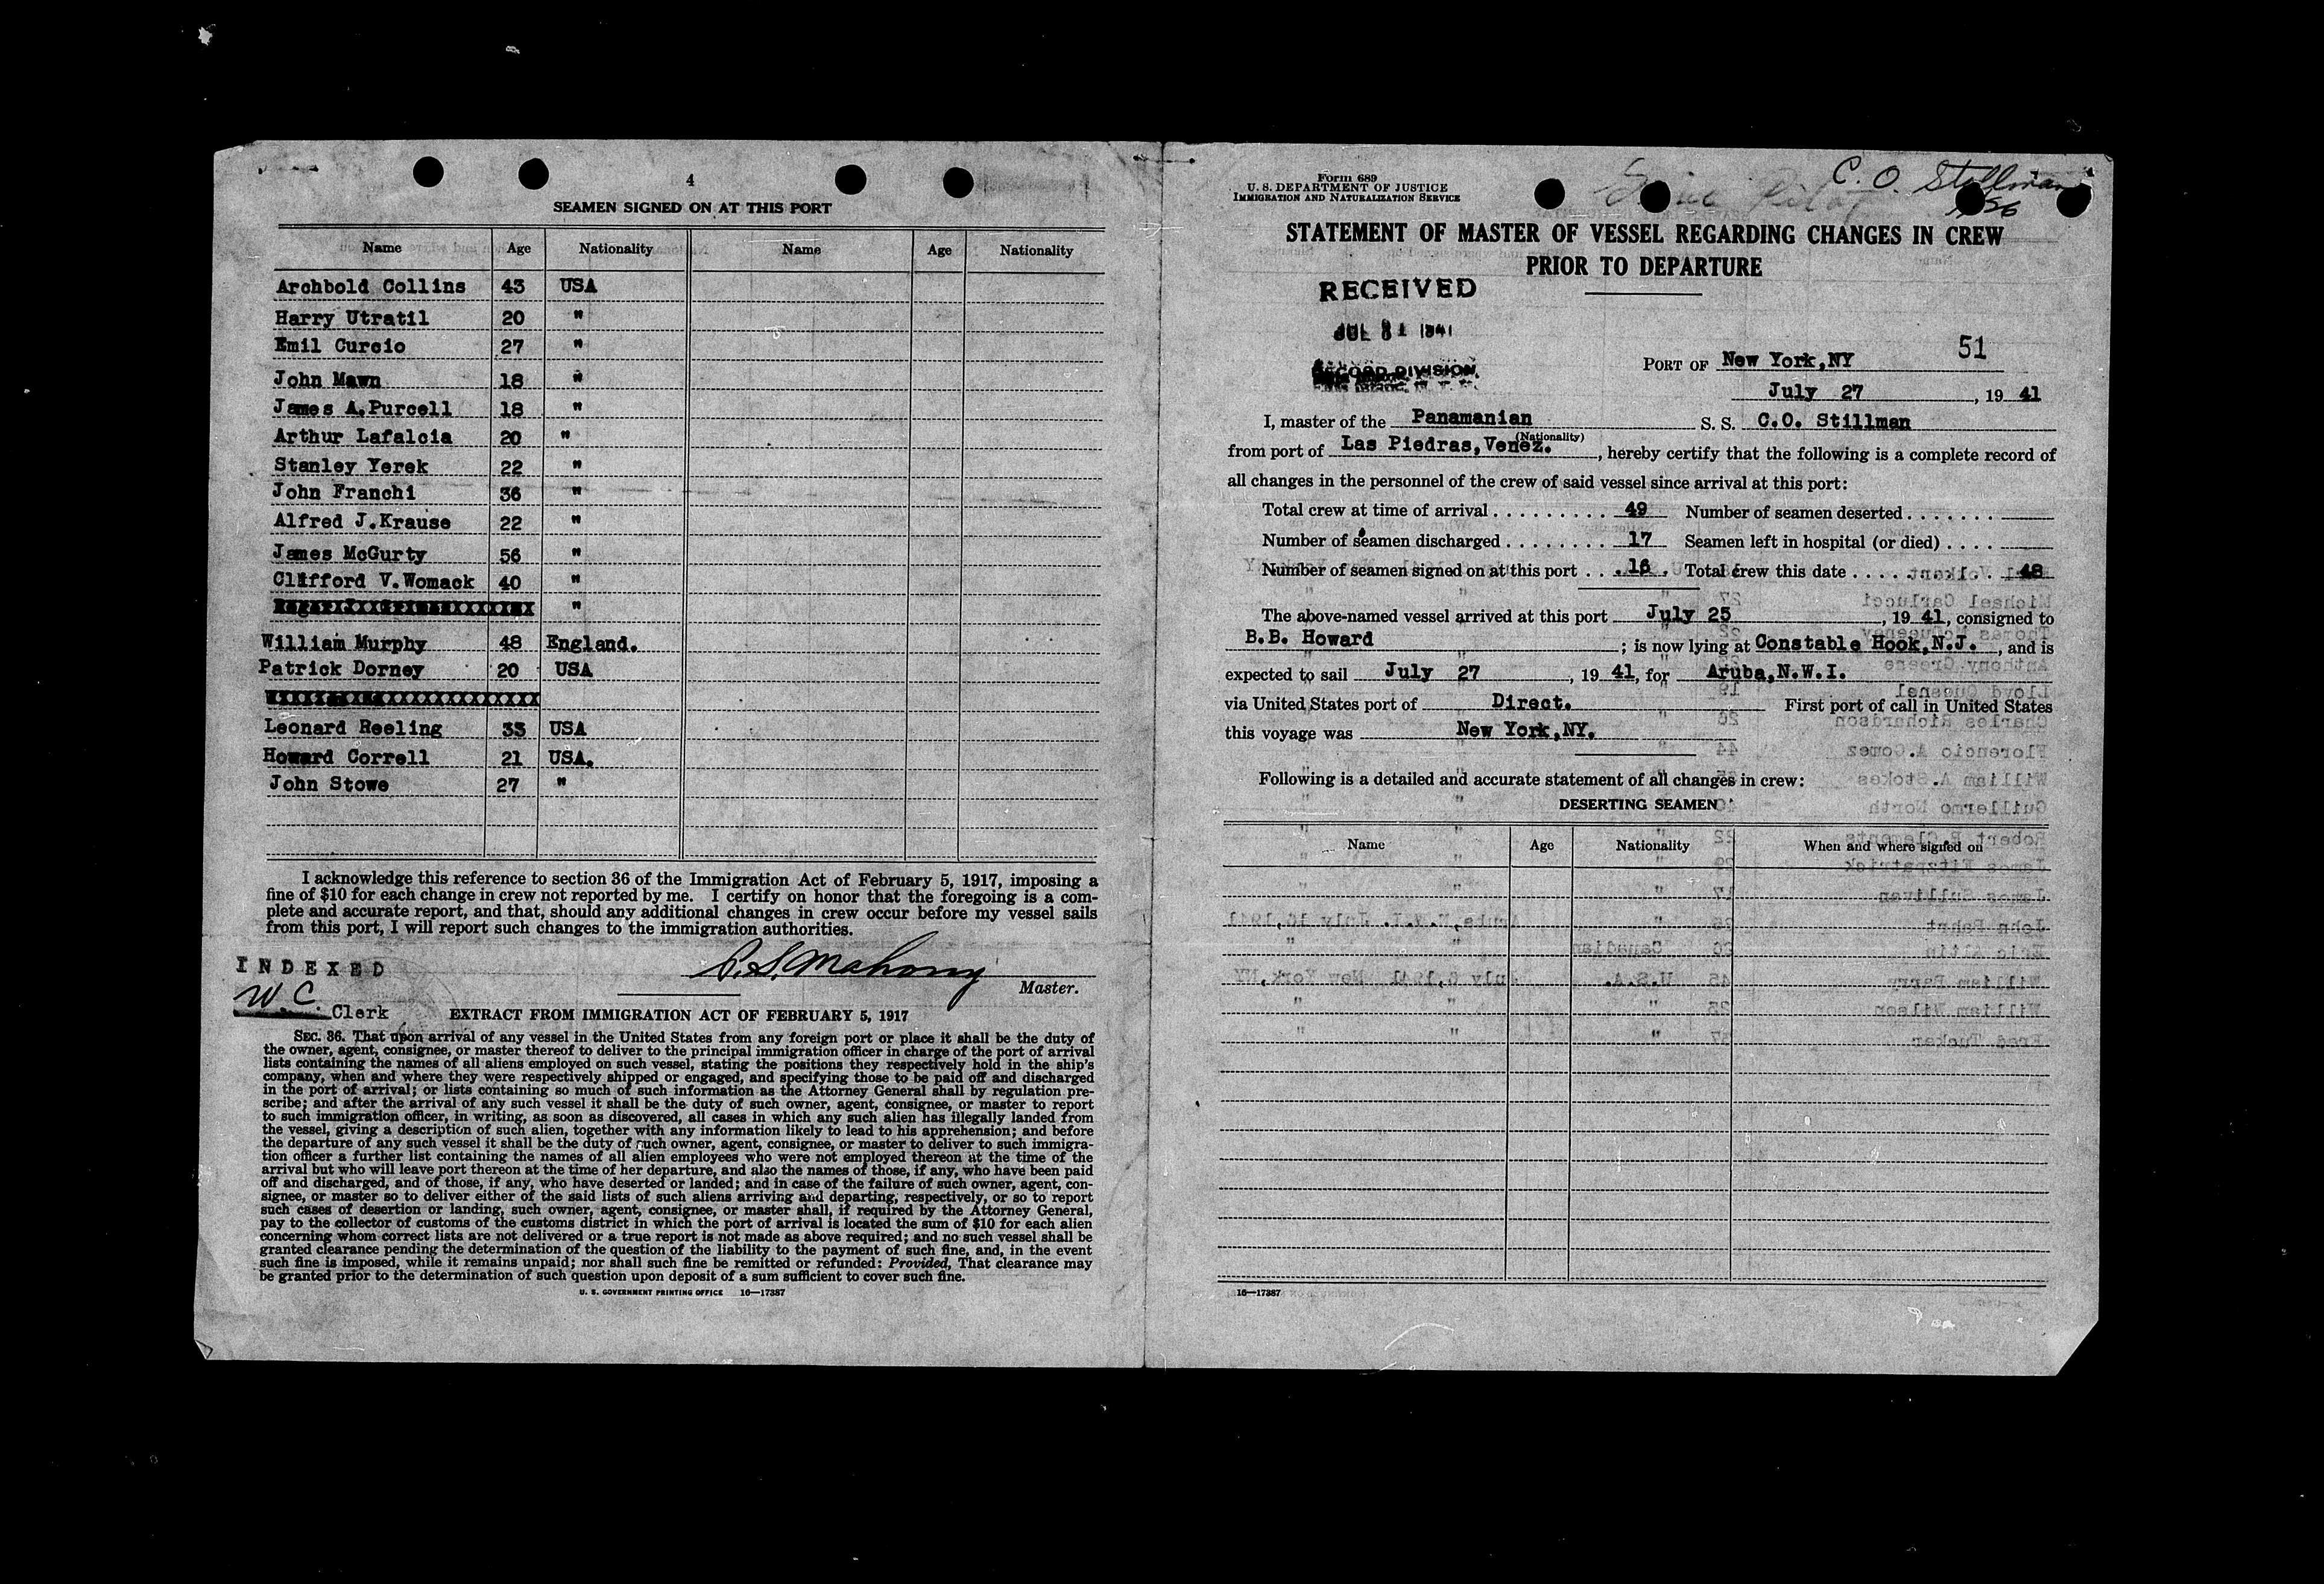 4
SEAMEN SIGNED ON AT THIS PORT
Name Age Nationality Name Age Nationality
Archbold Collins 43 USA
Harry Utratil 20 "
Emil Curcio 27 "
John Mawn 18 "
James A.Purcell 18 "
Arthur Lafalcia 20 "
Stanley Yerek 22 "
John Franchi 36 "
Alfred J.Krause 22 "
James McGurty 56 "
Clifford V.Womack 40 "
"
William Murphy 48 England.
Patrick Dorney 20 USA
Leonard Reeling 33 USA
Howard Correll 21 USA.
John Stowe 27 "
I acknowledge this reference to section 36 of the Immigration Act of February 5, 1917, imposing a
fine of $10 for each change in crew not reported by me. I certify on honor that the foregoing is a com-
plete and accurate report, and that, should any additional changes in crew occur before my vessel sails
from this port, I will report such changes to the immigration authorities.
INDEXED
Mahony
Master.
W C
Clerk
EXTRACT FROM IMMIGRATION ACT OF FEBRUARY 5, 1917
SEC. 36. That upon arrival of any vessel in the United States from any foreign port or place it shall be the duty of
the owner, agent, consignee, or master thereof to deliver to the principal immigration officer in charge of the port of arrival
lists containing the names of all aliens employed on such vessel, stating the positions they respectively hold in the ship's
company, when and where they were respectively shipped or engaged, and specifying those to be paid off and discharged
in the port of arrival; or lists containing so much of such information as the Attorney General shall by regulation pre-
scribe; and after the arrival of any such vessel it shall be the duty of such owner, agent, consignee, or master to report
to such immigration officer, in writing, as soon as discovered, all cases in which any such alien has illegally landed from
the vessel, giving a description of such alien, together with any information likely to lead to his apprehension; and before
the departure of any such vessel it shall be the duty of such owner, agent, consignee, or master to deliver to such immigra-
tion officer a further list containing the names of all alien employees who were not employed thereon at the time of the
arrival but who will leave port thereon at the time of her departure, and also the names of those, if any, who have been paid
off and discharged, and of those, if any, who have deserted or landed; and in case of the failure of such owner, agent, con-
signee, or master so to deliver either of the said lists of such aliens arriving and departing, respectively, or so to report
such cases of desertion or landing, such owner, agent, consignee, or master shall, if required by the Attorney General,
pay to the collector of customs of the customs district in which the port of arrival is located the sum of $10 for each alien
concerning whom correct lists are not delivered or a true report is not made as above required; and no such vessel shall be
granted clearance pending the determination of the question of the liability to the payment of such fine, and, in the event
such fine is imposed, while it remains unpaid; nor shall such fine be remitted or refunded: Provided, That clearance may
be granted prior to the determination of such question upon deposit of a sum sufficient to cover such fine.
U. S. GOVERNMENT PRINTING OFFICE 16—17387
Form 689
U. S. DEPARTMENT OF JUSTICE
IMMIGRATION AND NATURALIZATION SERVICE
C. O. Stillman
STATEMENT OF MASTER OF VESSEL REGARDING CHANGES IN CREW
PRIOR TO DEPARTURE
RECEIVED
JUL 31 1941
RECORD DIVISION
51
PORT OF New York,NY
July 27, 19 41
I, master of the Panamanian S. S. C.O. Stillman
(Nationality)
from port of Las Piedras,Venez., hereby certify that the following is a complete record of
all changes in the personnel of the crew of said vessel since arrival at this port:
Total crew at time of arrival . . . . . . . . . 49 Number of seamen deserted . . . . . . .
Number of seamen discharged . . . . . . . . 17 Seamen left in hospital (or died) . . . .
Number of seamen signed on at this port . . . 16 . Total crew this date . . . . . . . . . . 48
The above-named vessel arrived at this port July 25, 19 41, consigned to
B.B. Howard ; is now lying at Constable Hook,N.J. , and is
expected to sail July 27, 19 41, for Aruba,N.W.I.
via United States port of Direct. First port of call in United States
this voyage was New York,NY.
Following is a detailed and accurate statement of all changes in crew:
DESERTING SEAMEN
Name Age Nationality When and where signed on
16—17387